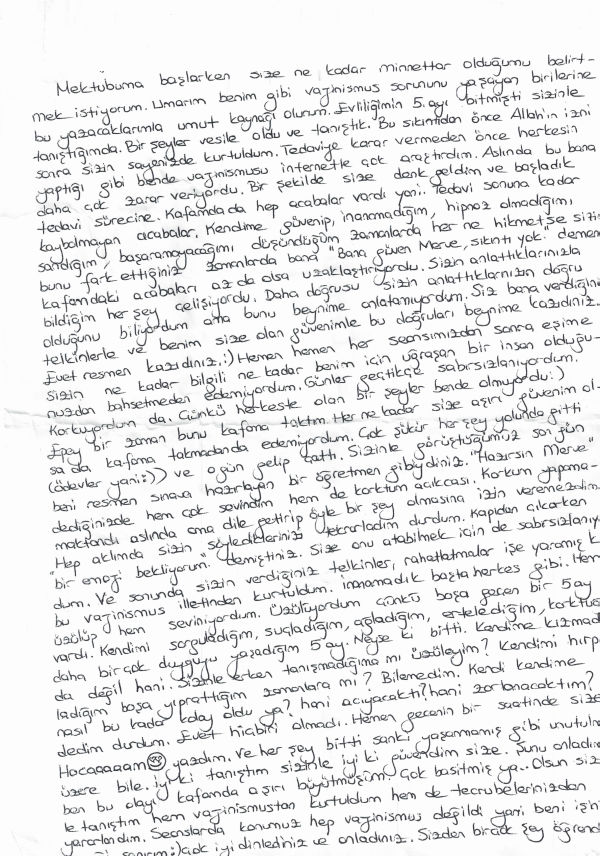 Mektubuma başlarken size ne kadar minnettar olduğumu belirt-
mek istiyorum. Umarım benim gibi vajinismus sorununu yaşayan birilerine
bu yazacaklarımla umut kaynağı olurum. Evliliğimin 5. ayı bitmişti sizinle
tanıştığımda. Bir şeyler vesile oldu ve tanıştık. Bu sıkıntıdan önce Allah'ın izni
sonra sizin sayenizde kurtuldum. Tedaviye karar vermeden önce herkesin
yaptığı gibi bende vajinismusu internette çok araştırdım. Aslında bu bana
daha çok zarar veriyordu. Bir şekilde size denk geldim ve başladık
tedavi sürecine. Kafamda da hep acabalar vardı yani. Tedavi sonuna kadar
kaybolmayan acabalar. Kendime güvenip, inanmadığım, hipnoz olmadığımı
sandığım, başaramayacağımı düşündüğüm zamanlarda her ne hikmetse sizin
bunu fark ettiğiniz zamanlarda bana "Bana güven Merve, sıkıntı yok." demen
kafamdaki acabaları az da olsa uzaklaştırıyordu. Sizin anlattıklarınızla
bildiğim her şey çelişiyordu. Daha doğrusu sizin anlattıklarınızın doğru
olduğunu biliyordum ama bunu beynime anlatamıyordum. Siz bana verdiğini
telkinlerle ve benim size olan güvenimle bu doğruları beynime kazıdınız.
Evet resmen kazıdınız.:) Hemen hemen her seansımızdan sonra eşime
sizin ne kadar bilgili ne kadar benim için uğraşan bir insan olduğu-
nuzdan bahsetmeden edemiyordum. Günler geçtikçe sabırsızlanıyordum.
Korkuyordum da. Çünkü herkeste olan bir şeyler bende olmuyordu:)
Epey bir zaman bunu kafama taktım. Her ne kadar size aşırı güvenim ol-
sa da kafama takmadanda edemiyordum. Çok şükür her şey yolunda gitti
(ödevler yani:)) ve o gün gelip çattı. Sizinle görüştüğümüz son gün
beni resmen sınava hazırlayan bir öğretmen gibiydiniz. "Hazırsın Merve"
dediğinizde hem çok sevindim hem de korktum açıkcası. Korkum yapama-
maktandı aslında ama dile getirip öyle bir şey olmasına izin veremezdim.
Hep aklımda sizin söylediklerinizi tekrarladım durdum. Kapıdan çıkarken
"bir emoji bekliyorum" demiştiniz. Size onu atabilmek için de sabırsızlanıyor
dum. Ve sonunda sizin verdiğiniz telkinler, rahatlatmalar işe yaramış k
bu vajinismus illetinden kurtuldum. İnanamadık başta herkes gibi. Hem
üzülüp hem seviniyordum. Üzülüyordum çünkü boşa geçen bir 5 ay
vardı. Kendimi sorguladığım, suçladığım, ağladığım, ertelediğim, korktuğum
daha birçok duyguyu yaşadığım 5 ay. Neyse ki bitti. Kendime kızmad
da değil hani. Sizinle erken tanışmadığıma mı üzüleyim? Kendimi hırpa
ladığım boşa yıprattığım zamanlara mı? Bilemedim. Kendi kendime
nasıl bu kadar kolay oldu ya? hani acıyacaktı? hani zorlanacaktım?
dedim durdum. Evet hiçbiri olmadı. Hemen gecenin bir saatinde size
Hocaaaaam yazdım. Ve her şey bitti sanki yaşanmamış gibi unutulm
üzere bile. İyi ki tanıştım sizinle iyi ki güvendim size. Şunu anladım
ben bu olayı kafamda aşırı büyütmüşüm. Çok basitmiş ya.. Olsun siz
le tanıştım hem vajinismustan kurtuldum hem de tecrübelerinizden
yararlandım. Seanslarda konumuz hep vajinismus değildi yani beni
sanırım:) Çok iyi dinlediniz ve anladınız. Sizden birçok şey öğrend